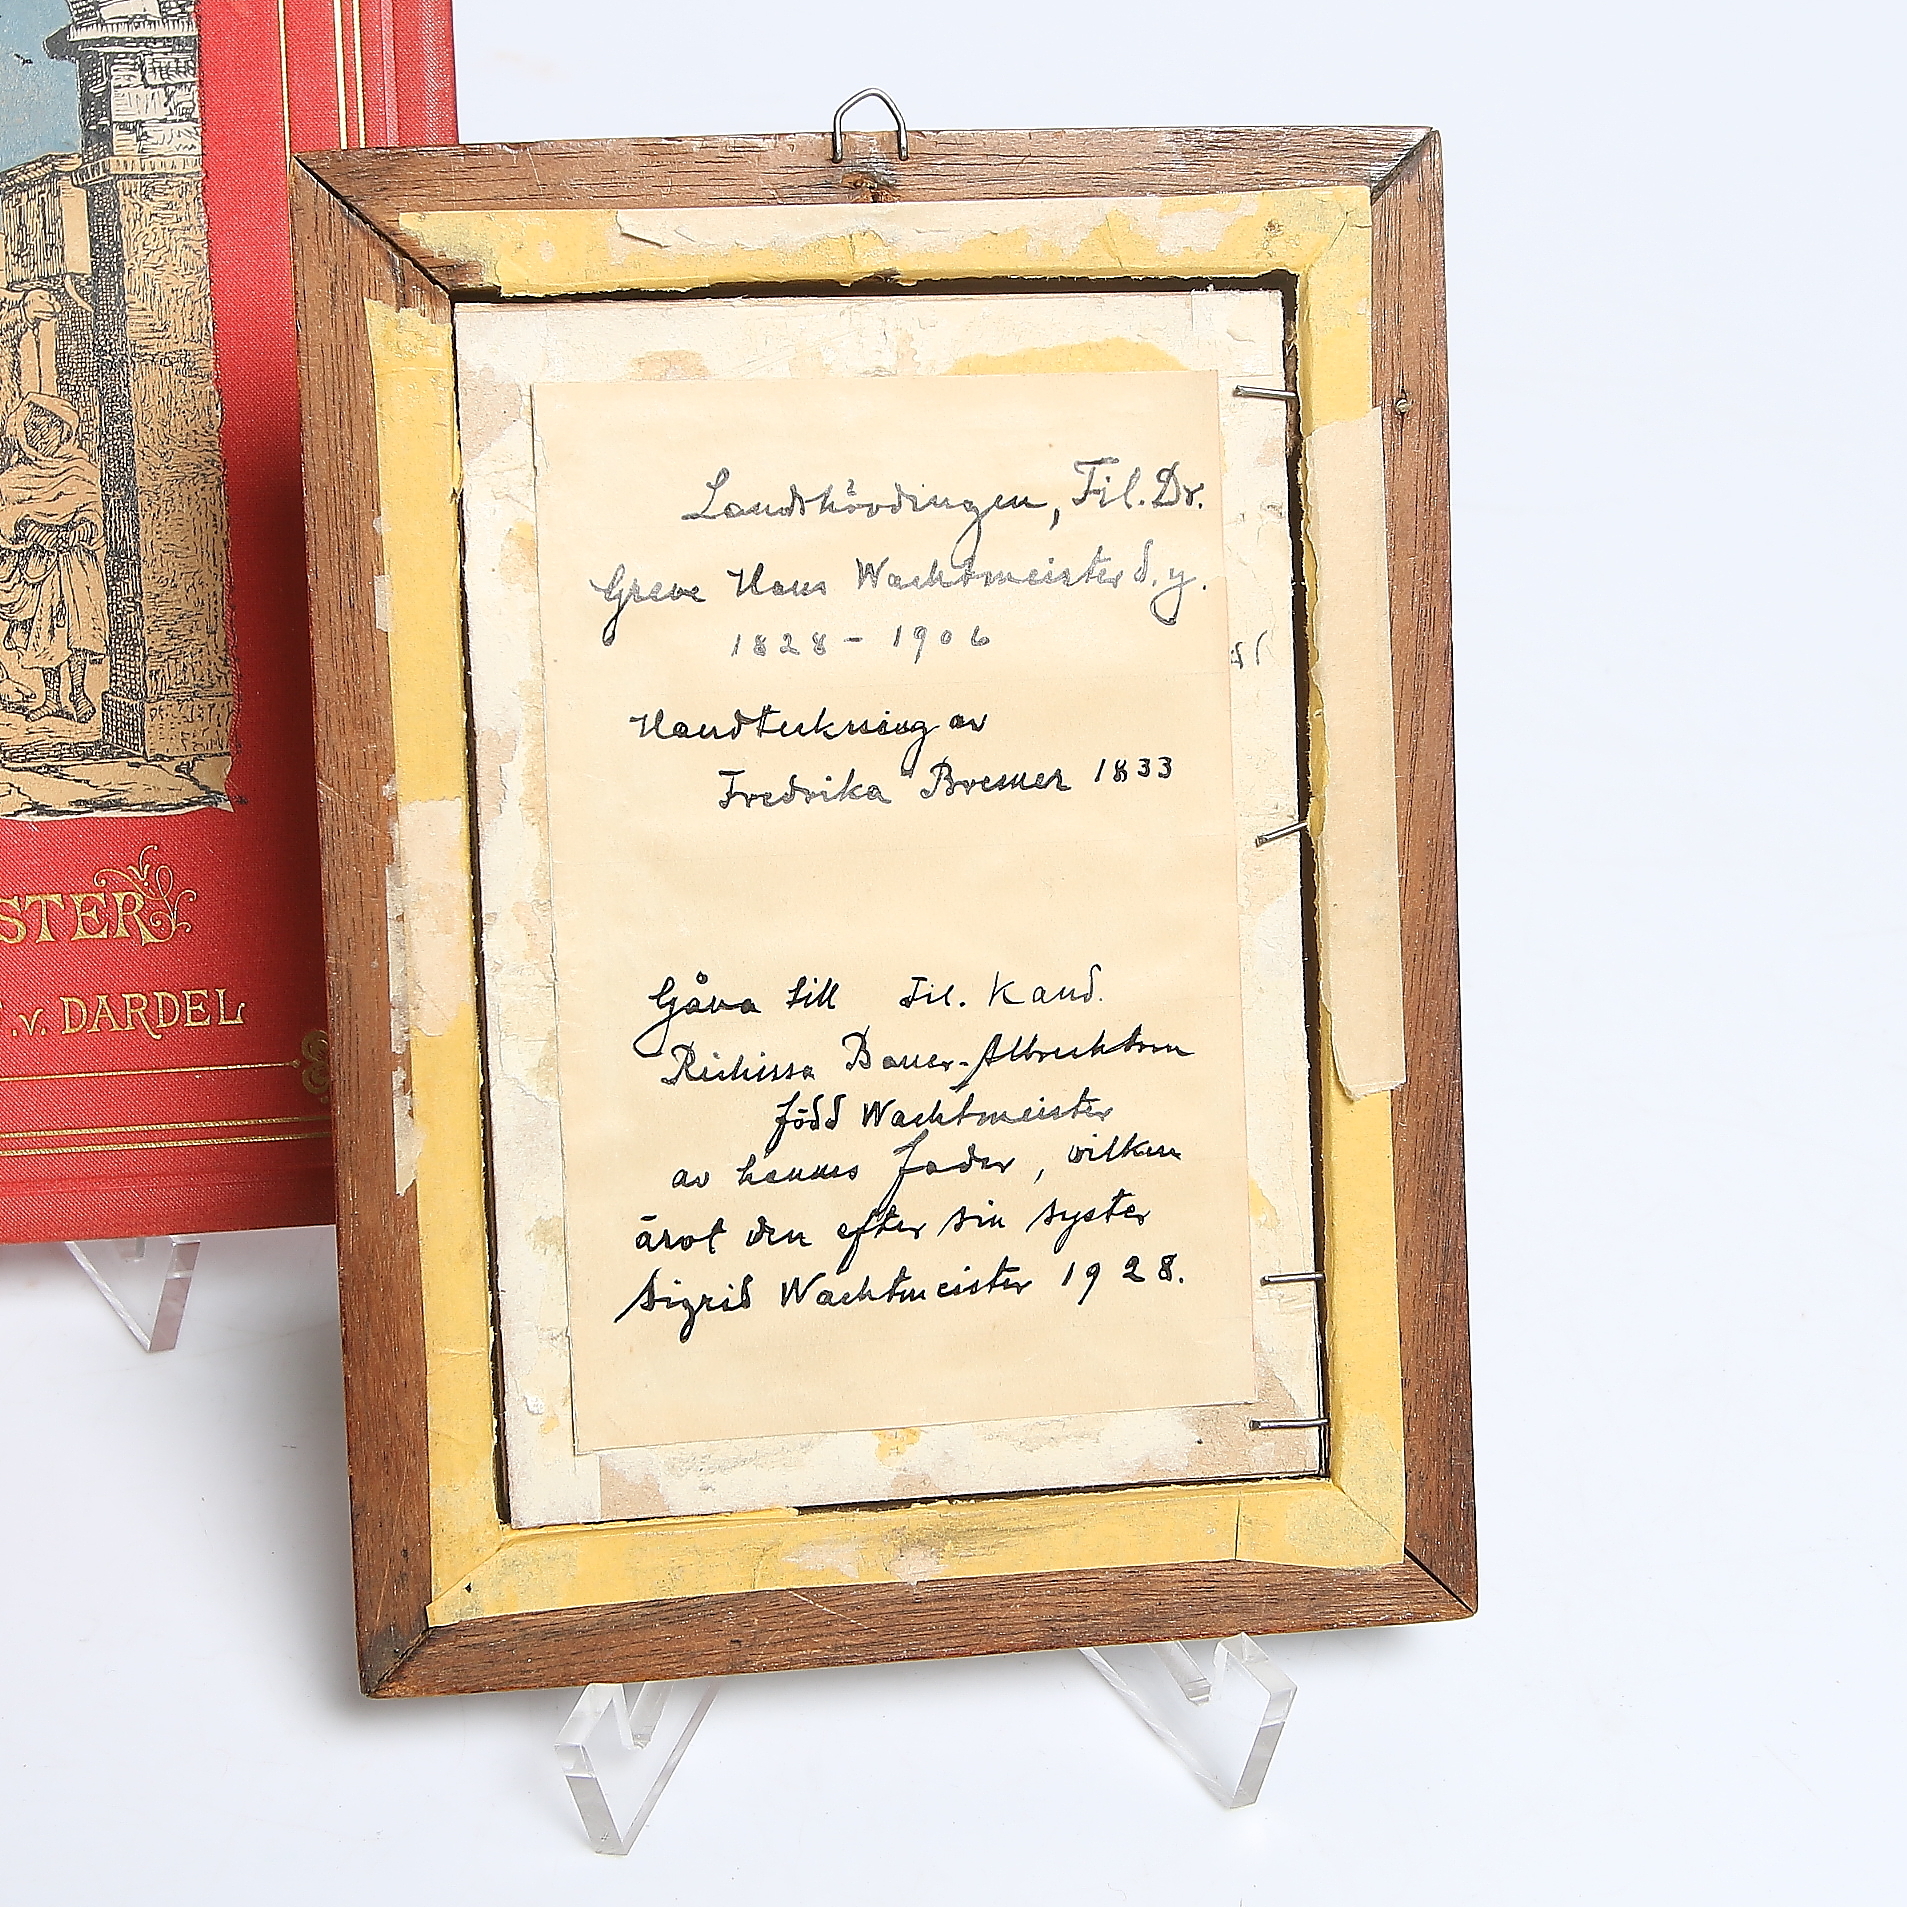 STER
F. v. DARDEL
Landshövdingen, Fil. Dr.
Greve Hans Wachtmeister d. y.
1828 - 1906
Handteckning av
Fredrika Bremer 1833
Gåva till Fil. Kand.
Richissa Bauer-Albrechtson
född Wachtmeister
av hennes fader, vilken
ärvt den efter sin syster
Sigrid Wachtmeister 1928.